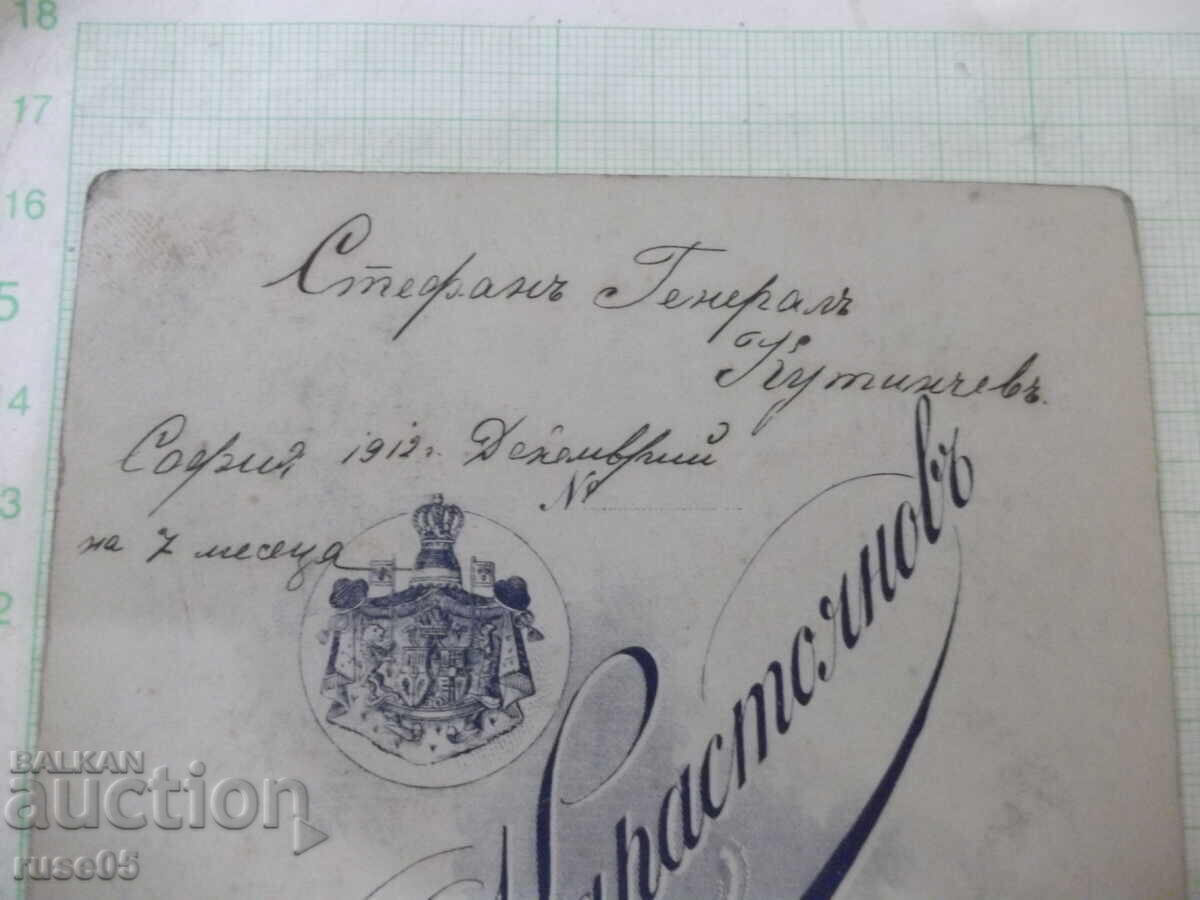 18
17
16
5
14
3
2
Стефанъ Генералъ
Кутинчевъ.
София 1912 г. Декемврий
№
на 7 месеца
Карастояновъ
BALKAN
auction
ruse05